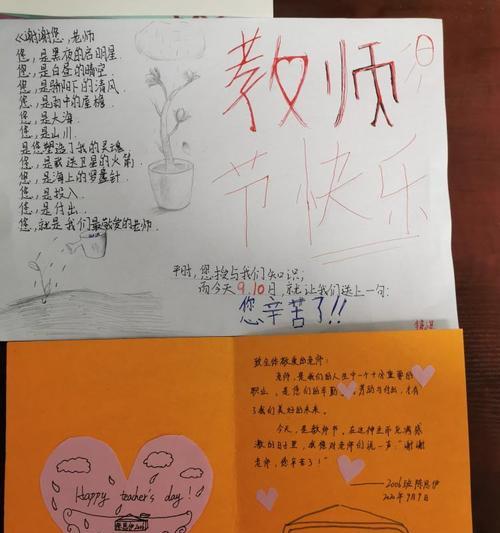 《谢谢您,老师
您,是黑夜的启明星.
您,是白昼的晴空
您,是骄阳下的清风.
您,是雨中的屋檐.
您,是大海.
您,是山川.
是您塑造了我的灵魂
您,是载送卫星的火箭.
您,是海上的
您,是投入.
您,是付出.
您,就是我们最敬爱的老师.
教师
节快乐
平时,您授与我们知识;
而今天9.10日,就让我们送上一句:
您辛苦了!!
致全体敬爱的老师:
老师,是我们的人生中一个十分重要的
职业,是您们的辛勤劳动与付出,才有
了我们美好的未来.
今天,是教师节.在这种充满感
激的日子里,我想对老师们说一声:"谢谢
老师,您辛苦了!"
——2006班 陈思伊
2020年9月9日
Happy teacher's day!